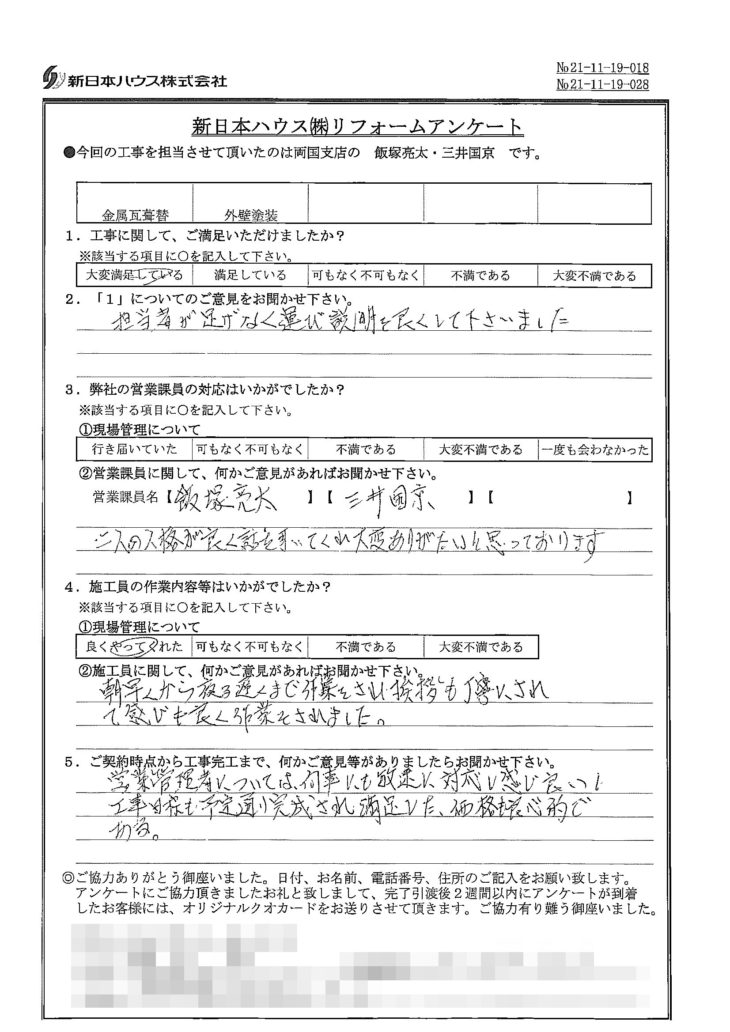 新日本ハウス株式会社
№21-11-19-018
№21-11-19-028
新日本ハウス㈱リフォームアンケート
●今回の工事を担当させて頂いたのは両国支店の 飯塚亮太・三井国京 です。
金属瓦葺替 外壁塗装
1．工事に関して、ご満足いただけましたか？
※該当する項目に○を記入して下さい。
大変満足している 満足している 可もなく不可もなく 不満である 大変不満である
2．「1」についてのご意見をお聞かせ下さい。
担当者が足げなく運び説明を良くして下さいました
3．弊社の営業課員の対応はいかがでしたか？
※該当する項目に○を記入して下さい。
①現場管理について
行き届いていた 可もなく不可もなく 不満である 大変不満である 一度も会わなかった
②営業課員に関して、何かご意見があればお聞かせ下さい。
営業課員名【飯塚亮太 】【 三井国京 】【 】
二人の人格が良く話を聞いてくれ大変ありがたいと思っております
4．施工員の作業内容等はいかがでしたか？
※該当する項目に○を記入して下さい。
①現場管理について
良くやってくれた 可もなく不可もなく 不満である 大変不満である
②施工員に関して、何かご意見があればお聞かせ下さい。
朝早くから夜る遅くまで作業をされ挨拶も丁寧にされ
て感じも良く作業をされました。
5．ご契約時点から工事完工まで、何かご意見等がありましたらお聞かせ下さい。
営業管理者については、何事にも敏速に対応し感じ良い！
工事日程も予定通り完成され満足した、価格も良心的で
ある。
◎ご協力ありがとう御座いました。日付、お名前、電話番号、住所のご記入をお願い致します。
アンケートにご協力頂きましたお礼と致しまして、完了引渡後２週間以内にアンケートが到着
したお客様には、オリジナルクオカードをお送りさせて頂きます。ご協力有り難う御座いました。